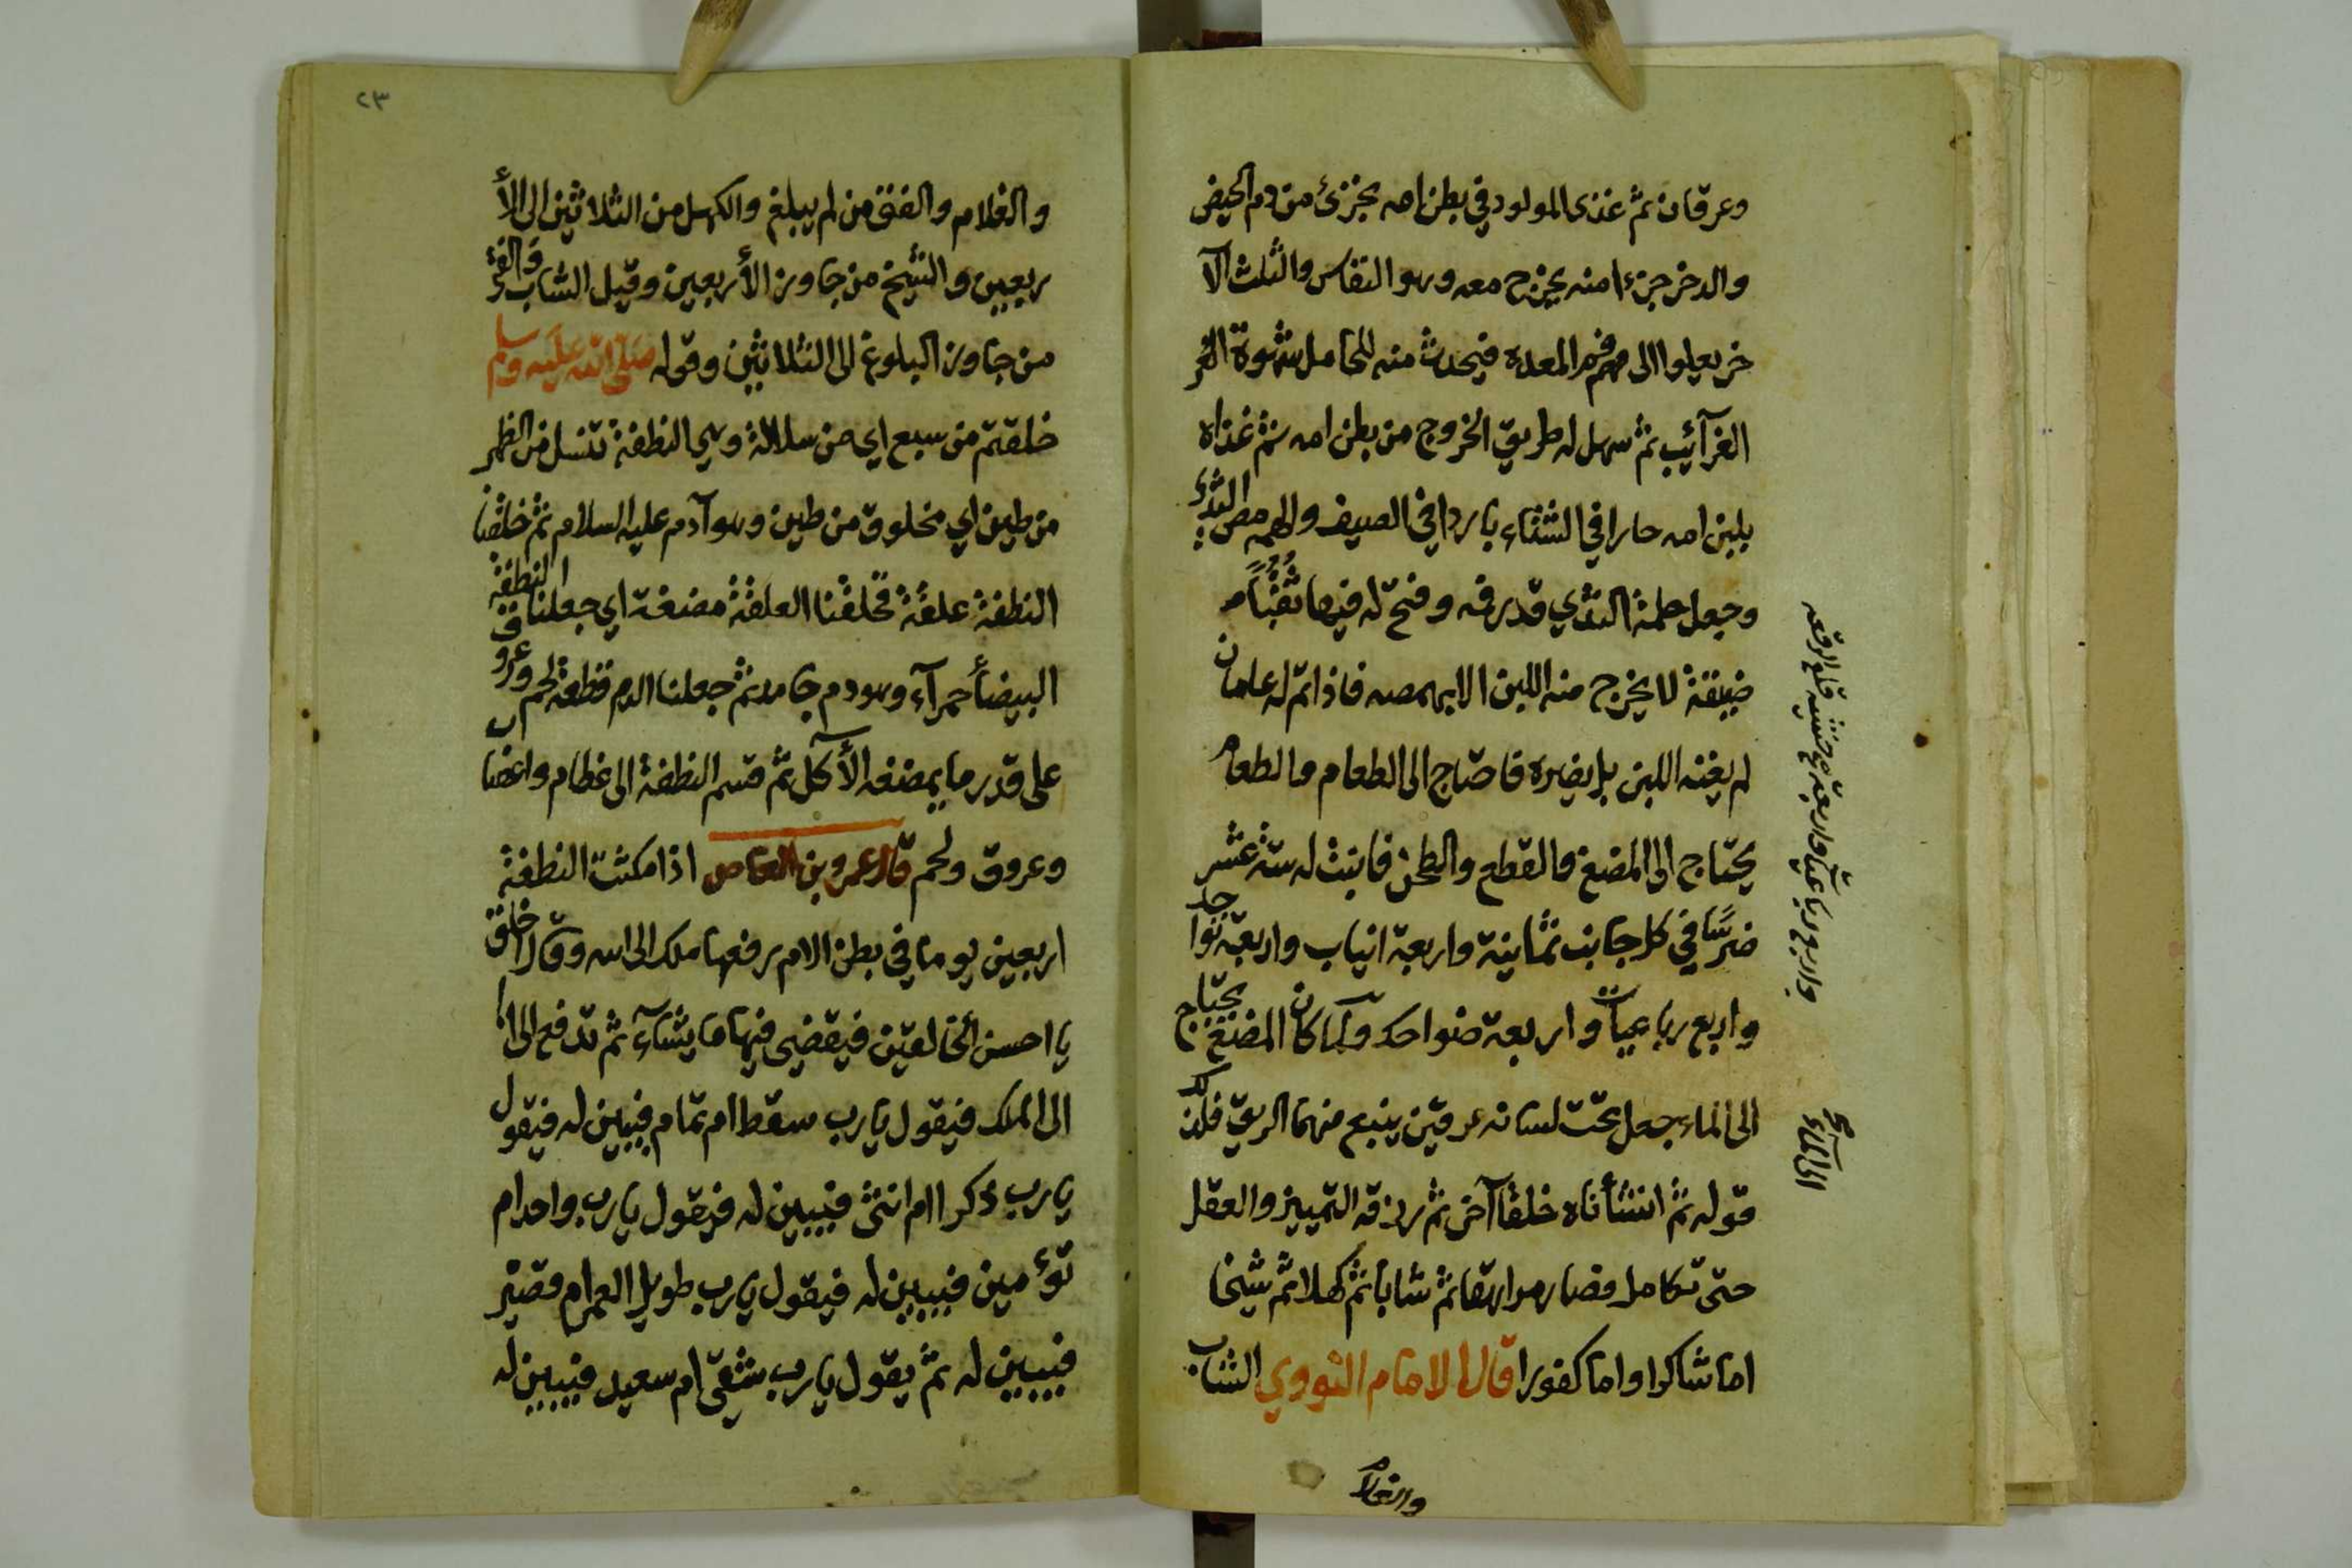 وعرقان ثم غذى المولود في بطن امه بجزئ من دم الحيض
والدخر جزءا منه يخرج معه وهو النفاس والثلث الآ
خر يعلوا الى فم المعده فيحدث منه للحامل شهوة
الغرآئب ثم سهل له طريق الخروج من بطن امه ثم غذاه
بلبن امه حارا في الشتاء باردا في الصيف والهمه مص الثدي
وجعل حلمة الثدي قدر فمه وفتح له فيها ثقبًا
ضيقة لا يخرج منه اللبن الا بمصه فاذا تم له عامان
لم يغنه اللبن بل يضره فاحتاج الى الطعام والطعام
يحتاج الى المضغ والقطع والطحن فانبت له ستة عشر
ضرسًا في كل جانب ثمانية واربعة انياب واربعة نواجد
واربع رباعيات واربعة ضواحك ولما كان المضغ يحتاج
الى الماء جعل تحت لسانه عرقين ينبع منهما الريق فلذلك
قوله ثم انشأناه خلقا آخر ثم رزقه التمييز والعقل
حتى تكامل فصار مراهقا ثم شابا ثم كهلا ثم شيخا
اما شاكرا واما كفورا قال الامام النووي الشاب
والغلام
٢٣
والغلام والفتى من لم يبلغ والكهل من الثلاثين الى الأ
ربعين والشيخ من جاوز الأربعين وقيل الشاب والفتى
من جاوز البلوغ الى الثلاثين وقوله صلى الله عليه وسلم
خلقتم من سبع اي من سلالة وهي النطفة تنسل من الظهر
من طين اي مخلوق من طين وهو آدم عليه السلام ثم خلقنا
النطفة علقة فخلقنا العلقة مضغة اي جعلنا النطفة
البيضأ حمرآء وهو دم جامد ثم جعلنا الدم قطعة لحم وعروق
على قدر ما يمضغه الآكل ثم قسم النطفة الى عظام واعضا
وعروق ولحم قال عمرو بن العاص اذا مكثت النطفة
اربعين يوما في بطن الام رفعها ملك الى الله وقال اخلق
يا احسن الخالقين فيقضي فيها ما يشآء ثم تدفع الى
الى الملك فيقول يا رب سقط ام تمام فيبين له فيقول
يا رب ذكر ام انثى فيبين له فيقول يا رب واحد ام
توءمين فيبين له فيقول يا رب طويل العمر ام قصير
فيبين له ثم يقول يا رب شقي ام سعيد فيبين له